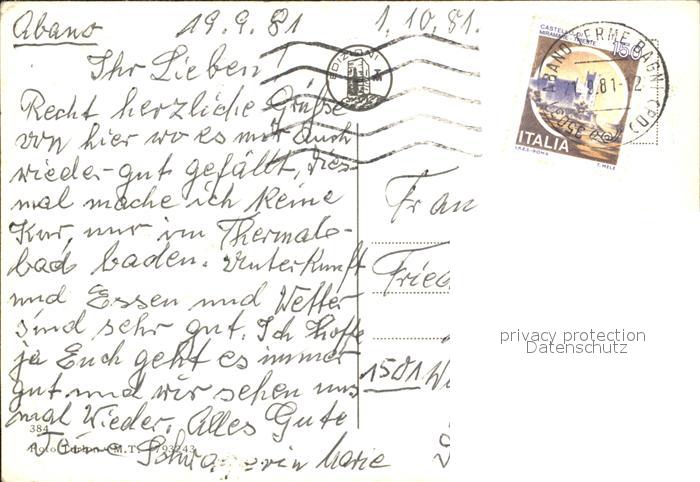 Abano 19.9.81 1.10.81.
Ihr Lieben!
Recht herzliche Grüße
von hier wo es mir auch
wieder gut gefällt, dies-
mal mache ich keine
Kur, nur im Thermal-
bad baden. Unterkunft
und Essen und Wetter
sind sehr gut. Ich hoffe
ja Euch geht es immer
gut und wir sehen uns
mal Wieder. Alles Gute
Schwägerin Marie
384
EDIZ. DAI
CASTELLO DI
MIRAMARE - TRIESTE
150
ITALIA
I.P.Z.S. ROMA
T. MELE
ABANO TERME BAGNI (PD)
9.81-12
Fran
Fried
1501
privacy protection
Datenschutz